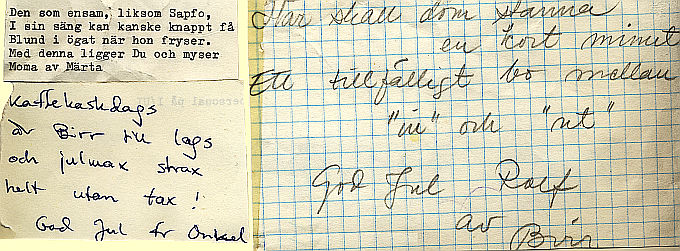 Den som ensam, liksom Sapfo,
I sin säng kan kanske knappt få
Blund i ögat när hon fryser.
Med denna ligger Du och myser
Moma av Märta
Kaffekaskdags
av Birr till lags
och julmax strax
helt utan tax!
God Jul fr Onkel
Här skall dom stanna
en kort minut
Ett tillfälligt bo mellan
"in" och "ut"
God Jul Rolf
av
Birr